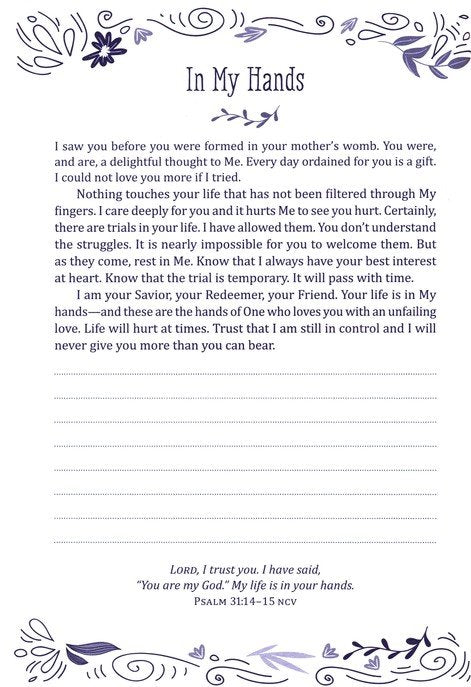 In My Hands
I saw you before you were formed in your mother's womb. You were,
and are, a delightful thought to Me. Every day ordained for you is a gift.
I could not love you more if I tried.
Nothing touches your life that has not been filtered through My
fingers. I care deeply for you and it hurts Me to see you hurt. Certainly,
there are trials in your life. I have allowed them. You don't understand
the struggles. It is nearly impossible for you to welcome them. But
as they come, rest in Me. Know that I always have your best interest
at heart. Know that the trial is temporary. It will pass with time.
I am your Savior, your Redeemer, your Friend. Your life is in My
hands—and these are the hands of One who loves you with an unfailing
love. Life will hurt at times. Trust that I am still in control and I will
never give you more than you can bear.
LORD, I trust you. I have said,
"You are my God." My life is in your hands.
PSALM 31:14–15 NCV